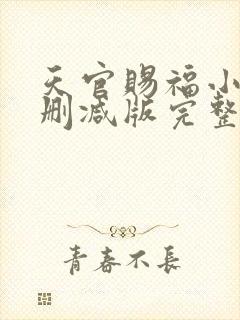 天官赐福小
删减版完整
青春不長